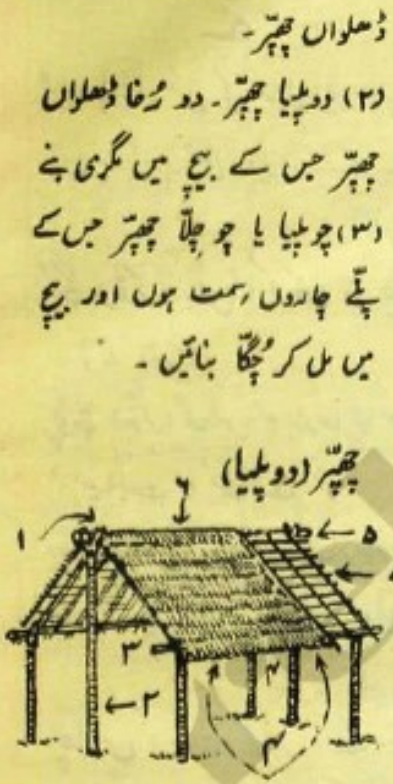 ڈھلواں چھپّر۔
(۲) دوپلیا چھپّر۔ دو رُخا ڈھلواں
چھپّر جس کے بیچ میں مگری بنے
(۳) چوپلیا یا چو چِلّا چھپّر جس کے
پلّے چاروں سمت ہوں اور بیچ
میں مل کر چُگّا بنائیں۔
چھپّر (دوپلیا)
۱
۶
۵
۳
۴
۲
۴